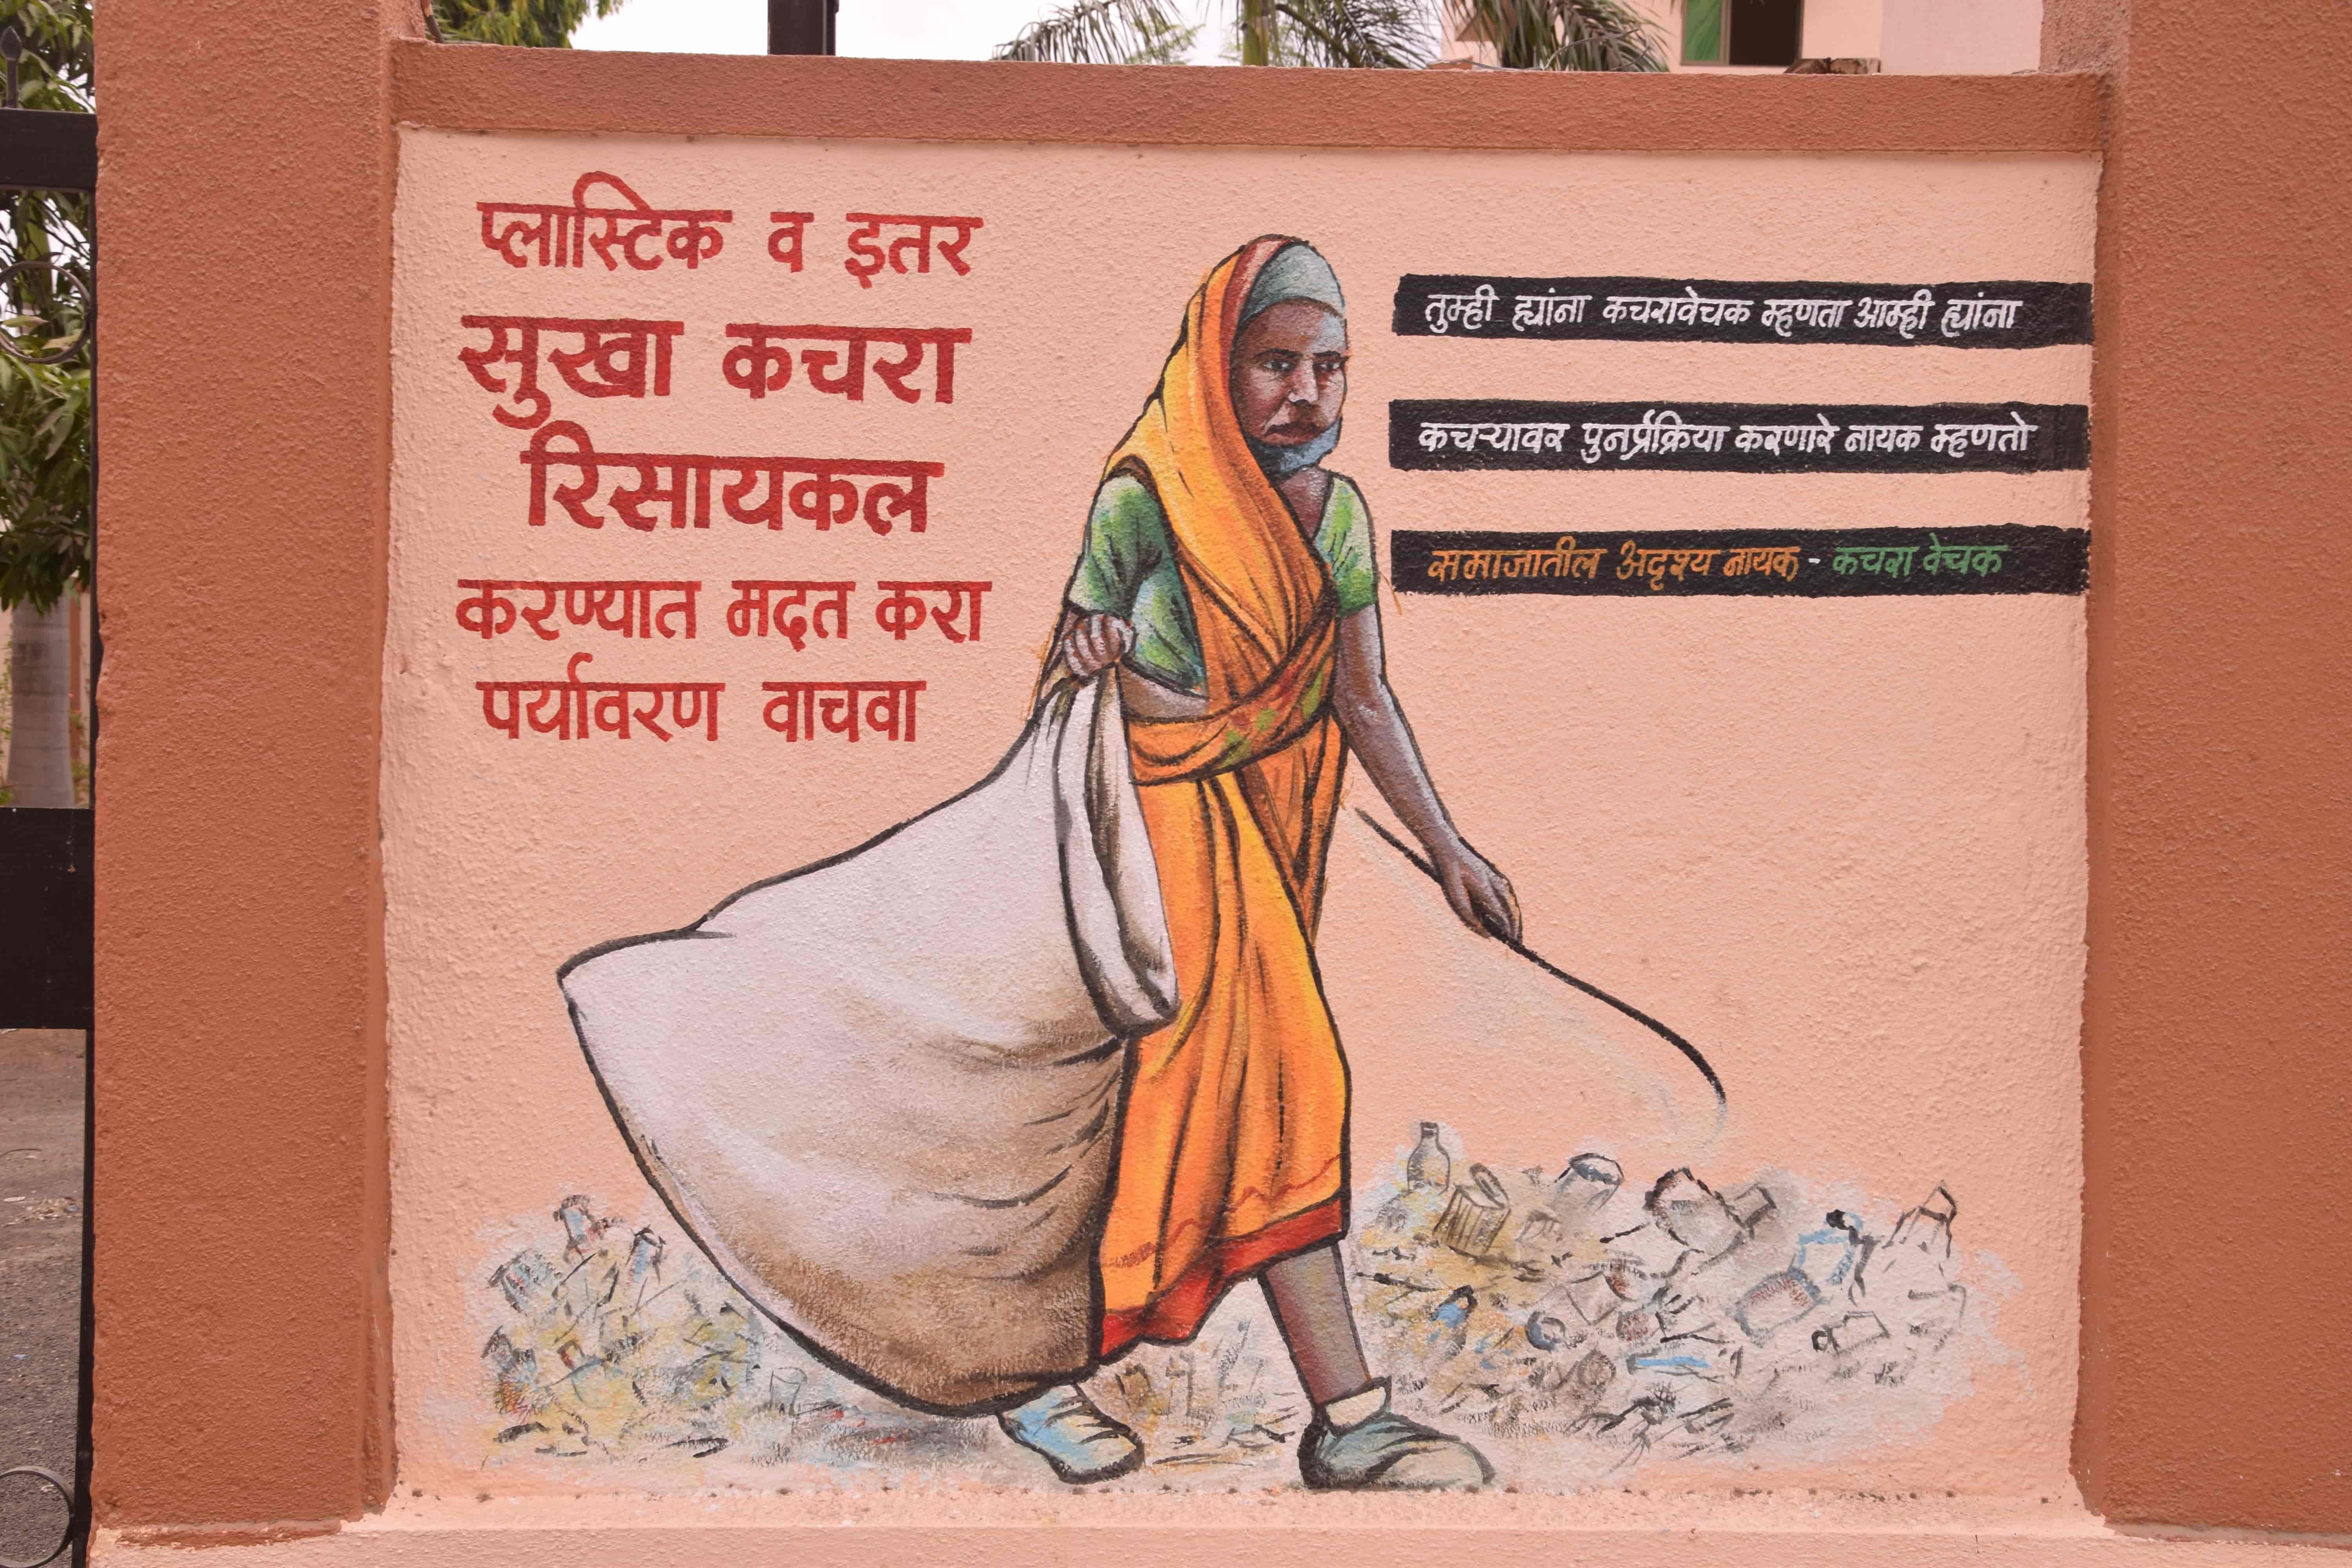 प्लास्टिक व इतर
सुखा कचरा
रिसायकल
करण्यात मदत करा
पर्यावरण वाचवा
तुम्ही ह्यांना कचरावेचक म्हणता आम्ही ह्यांना
कचऱ्यावर पुनर्प्रक्रिया करणारे नायक म्हणतो
समाजातील अदृश्य नायक - कचरा वेचक